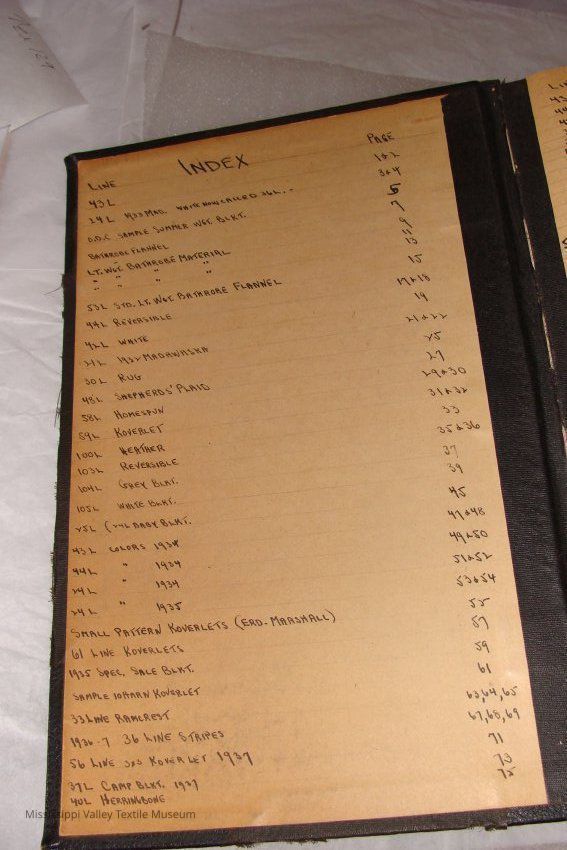 INDEX
LINE PAGE
43L 1&2
24L 1933 MAD. WHITE NOW CALLED 36L. - 3&4
O.D.C SAMPLE SUMMER WGT. BLKT. 5
BATHROBE FLANNEL 7
LT. WGT. BATHROBE MATERIAL 9
" " " " 11
" " " " 13
53L STD. LT. WGT BATHROBE FLANNEL 15
44L REVERSIBLE 17&18
42L WHITE 19
21L 1932 MADAWASKA 21&22
30L RUG 25
48L SHEPHERDS' PLAID 27
58L HOMESPUN 29&30
59L KOVERLET 31&32
100L HEATHER 33
103L REVERSIBLE 35&36
104L GREY BLKT. 37
105L WHITE BLKT. 39
25L (24L BABY BLKT. 45
43L COLORS 1934 47&48
44L " 1934 49&50
24L " 1934 51&52
24L " 1935 53&54
SMALL PATTERN KOVERLETS (ERD. MARSHALL) 55
61 LINE KOVERLETS 57
1935 SPEC. SALE BLKT. 59
SAMPLE KOVERLET 61
33 LINE RAMCREST 63,64,65
1936-7 36 LINE STRIPES 67,68,69
56 LINE KOVERLET 1937 71
37L CAMP BLKT. 1937 73
40L HERRINGBONE 75
Mississippi Valley Textile Museum